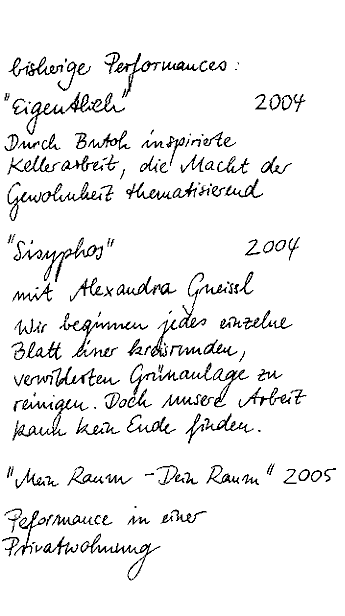 bisherige Performances:
"Eigentlich" 2004
Durch Butoh inspirierte
Kellerarbeit, die Macht der
Gewohnheit thematisierend
"Sisyphos" 2004
mit Alexandra Gneissl
Wir beginnen jedes einzelne
Blatt einer kreisrunden,
verwilderten Grünanlage zu
reinigen. Doch unsere Arbeit
kann kein Ende finden.
"Mein Raum - Dein Raum" 2005
Peformance in einer
Privatwohnung